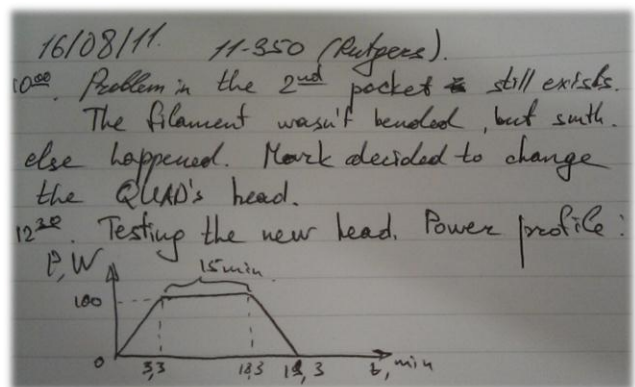 16/08/11. 11-350 (Rutgers).
10⁰⁰. Problem in the 2nd pocket still exists.
The filament wasn't bended, but smth.
else happened. Mark decided to change
the QUAD's head.
12³⁰. Testing the new head. Power profile:
P, W
15 min
100
0 3,3 18,3 , 3 t, min